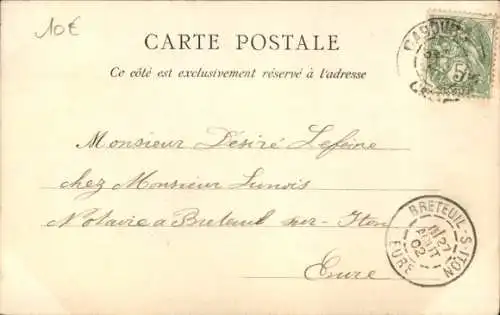 10€
CARTE POSTALE
Ce côté est exclusivement réservé à l'adresse
5
Monsieur Désiré Lefèine
chez Monsieur Lunois
Notaire a Breteuil sur-Iton
Eure
BRETEUIL-S-ITON
27
AOUT
02
EURE